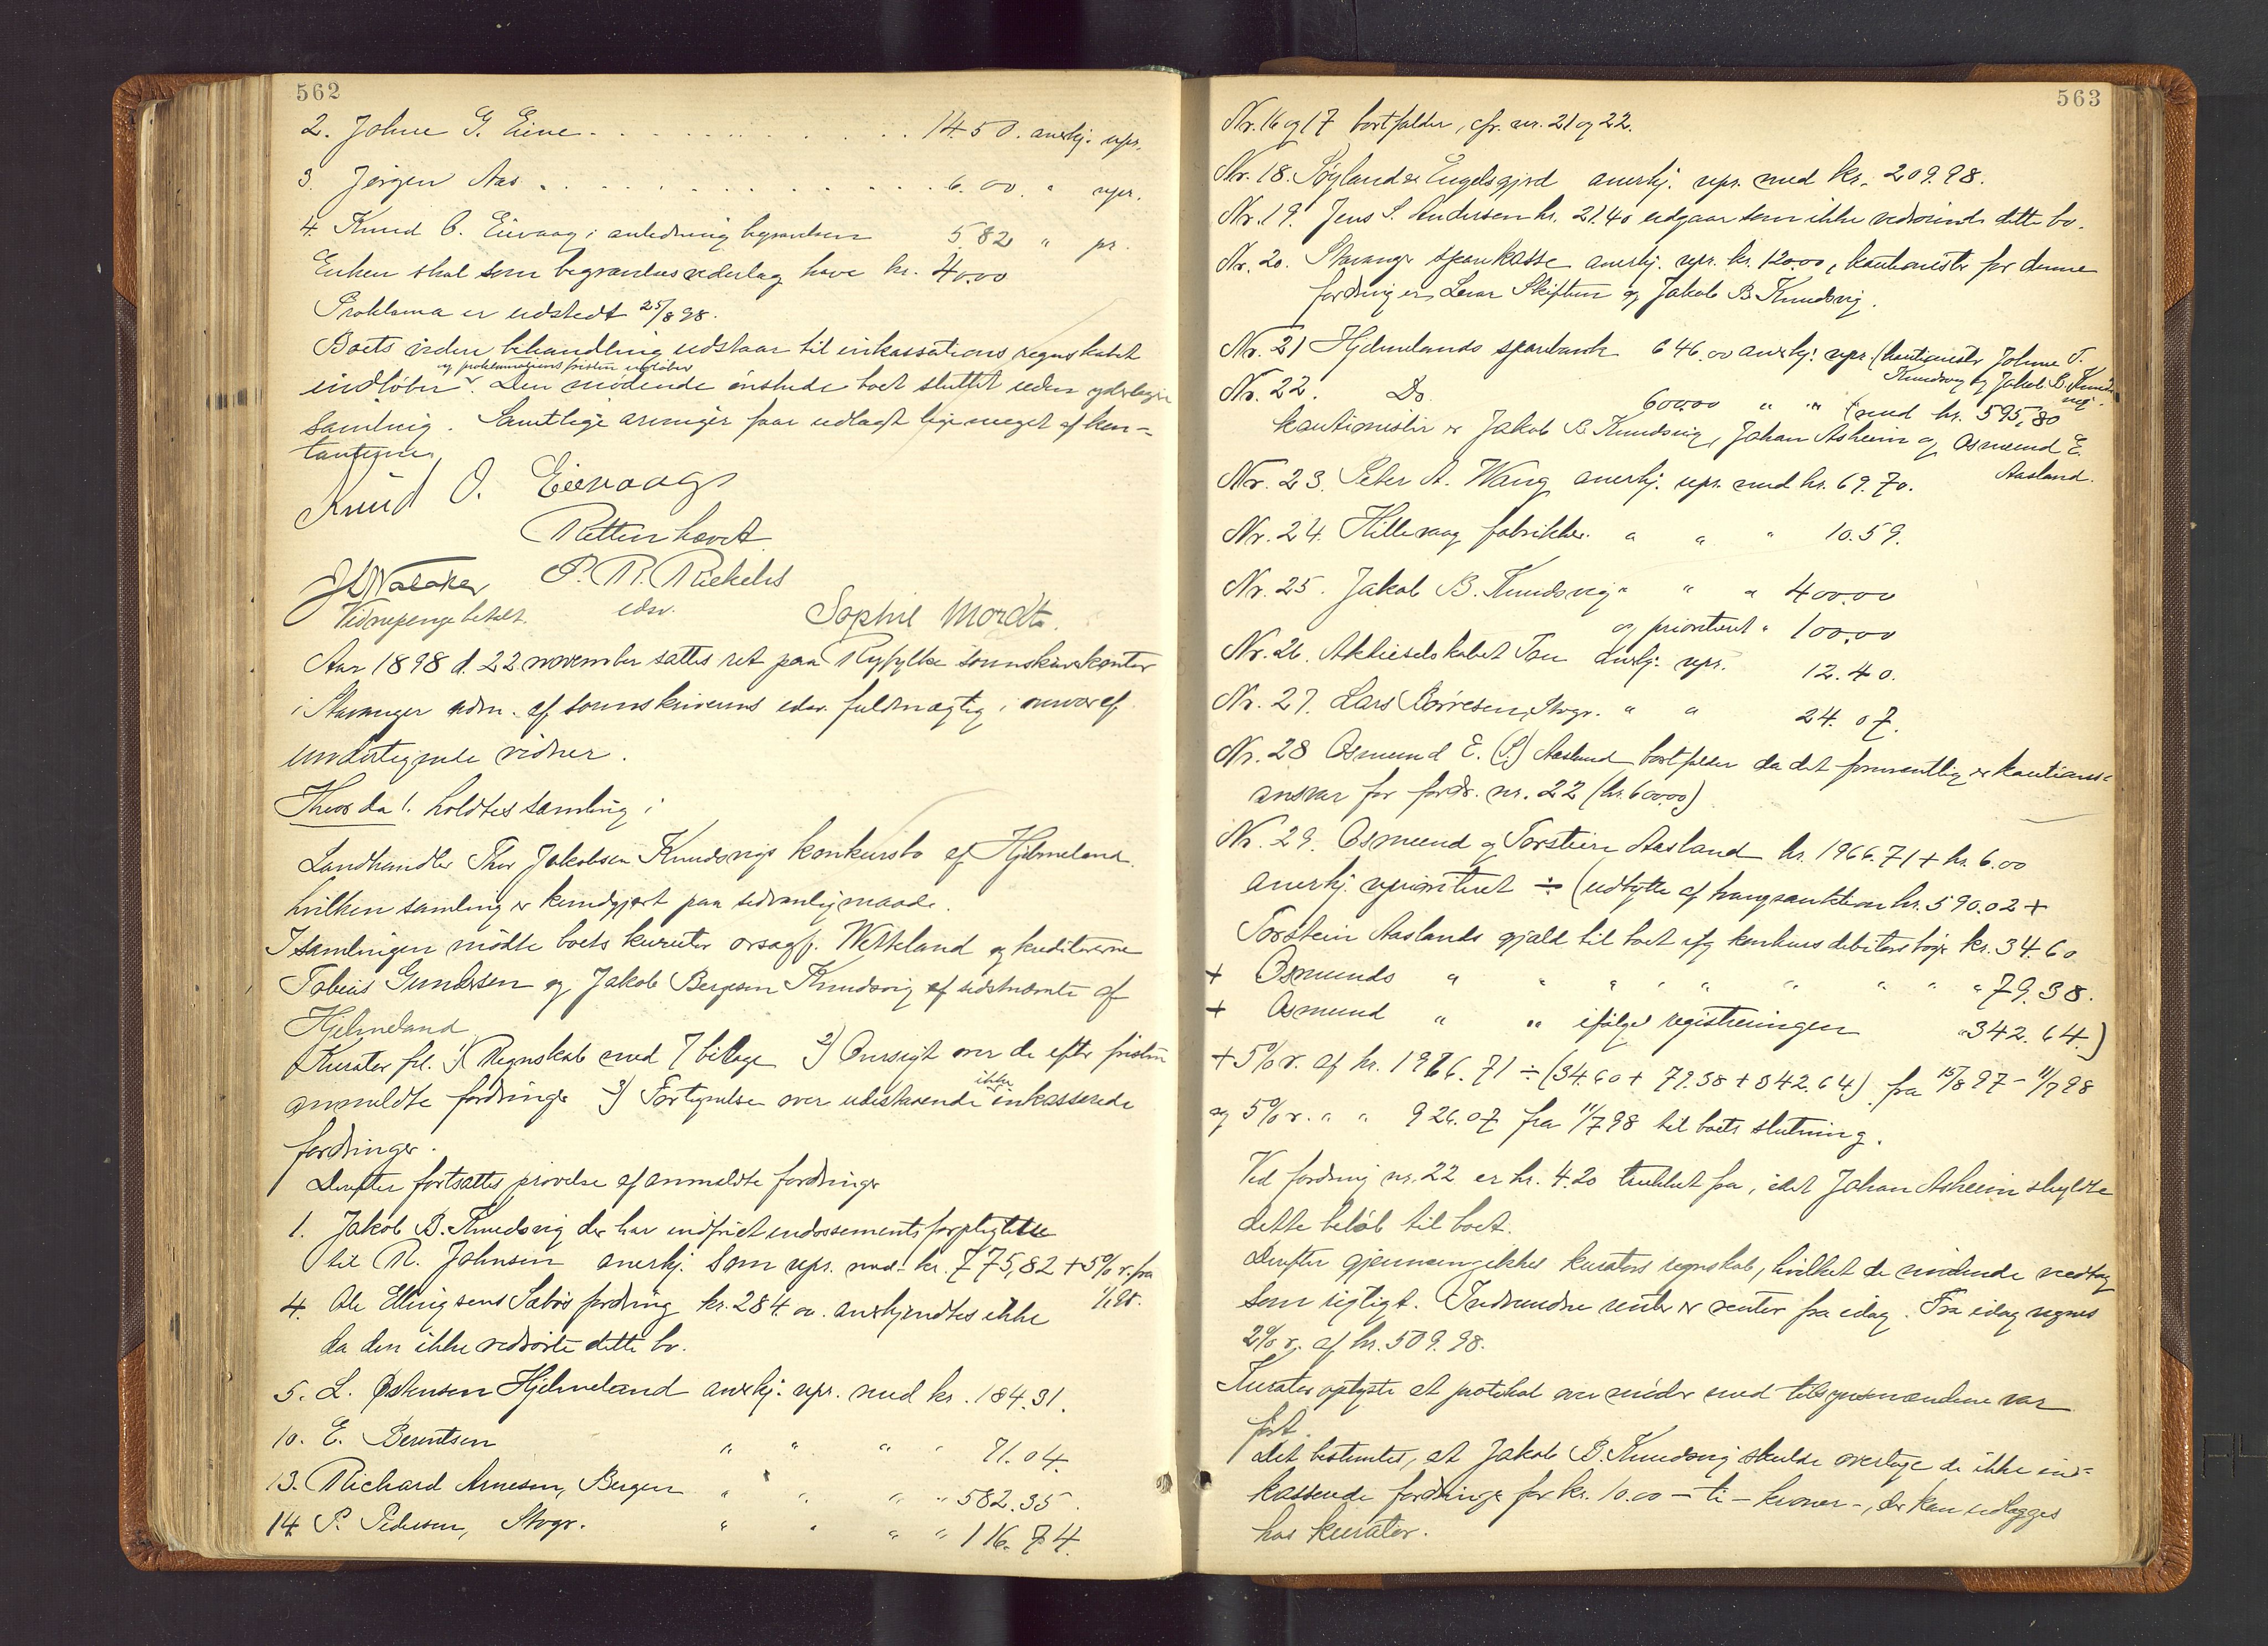 562
2. Johne G. Eine . . . . . . . . . . 14.50. anerkj. upr.
3. Jørgen Aas . . . . . . . . . . . . 6.00. " upr.
4. Knud O. Eievaag i anledning begravelsen 5.82 " pr.
Enken skal som begravelsesvederlag have kr. 40.00
Proklama er udstedt 25/8 98.
Boets videre behandling udstaar til inkassations regnskabet
og proklamationsfristen udløber
indløber. Den mødende ønskede boet sluttet uden yderligere
samling. Samtlige arvinger faar udlagt lige meget af kon-
tanterne.
Knud O. Eievaag
Retten hævet
P. R. Rickels
edsv.
Vidnepenge betalt.
Sophie Mordt.
Aar 1898 d. 22 november sattes ret paa Ryfylke sorenskriverkontor
i Stavanger adm. af sorenskriverens edsv. fuldmægtig i nærvær af
undertegnede vidner.
Hvorda!. holdtes samling i
Landhandler Thor Jakobsen Knudsvigs konkursbo af Hjelmeland
hvilken samling er kundgjort paa sedvanlig maade.
I samlingen mødte boets kurator orsagf. Wetteland og kreditorerne
Tobias Gundersen og Jakob Bergesen Knudsvig af sidstnævnte af
Hjelmeland
Kurator frl. 1) Regnskab med 7 bilage 2) Oversigt over de efter fristen
anmeldte fordringer 3) Fortegnelse over udestaaende ikke inkasserede
fordringer.
Derefter fortsattes prøvelse af anmeldte fordringer
1. Jakob B. Knudsvig der har indfriet endossementsforpligtelse
til R. Johnsen anerkj. som upr. med kr. 775,82 + 5% r. fra
4. Ole Ellingsens Sabøs fordring kr. 284.00. anerkjendtes ikke
da den ikke vedrørte dette bo.
5. L. Østensen Hjelmeland anerkj. upr. med kr. 184.31.
10. E. Berentsen " " " " 71.04.
13. Richard Arnesen, Bergen " " " " 582.35.
14. P. Pedersen, Stvgr. " " " " 116.74.
563
Nr. 16 og 17 bortfalder, cfr. nr. 21 og 22.
Nr. 18. Røyland & Engelsgjerd anerkj. upr. med kr. 209.98.
Nr. 19. Jens S. Andersen kr. 21.40 udgaar som ikke vedkommende dette bo.
Nr. 20. Stavanger sparekasse anerkj. upr. kr. 120.00, kautionister for denne
fordring er Lear Skiftun og Jakob B. Knudsvig.
Nr. 21 Hjelmelands sparebank 646.00 anerkj. upr. (kautionister Johne T.
Knudsvig og Jakob B. Knuds-
vig.
Nr. 22. Do 600.00 " " (med kr. 595,80
kautionister er Jakob B. Knudsvig, Johan Asheim og Osmund E.
Aasland.
Nr. 23. Peter A. Wang anerkj. upr. med kr. 69.70.
Nr. 24. Hillevaag fabrikker. " " " 10.59.
Nr. 25. Jakob B. Knudsvig " " " 400.00
og prioriteret " 100.00
Nr. 26. Aktieselskabet Tou anerkj. upr. 12.40.
Nr. 27. Lars Børresen, Stvgr. " " 24.07.
Nr. 28 Osmund E. (S.) Aasland bortfalder da det formentlig er kautions-
ansvar for fordr. nr. 22 (kr. 600.00)
Nr. 29. Osmund og Torstein Aasland kr. 1966.71 + kr. 6.00
anerkj. uprioriteret ÷ (udbytte af tvangsauktion kr. 590.02 +
Torstein Aaslands gjæld til boet ifg konkursdebitors bøger kr. 34.60
+ Osmunds " " " " " " " " " 79.38.
+ Osmund " " ifølge registreringen " 342.64.)
+ 5% r. af kr. 1966.71 ÷ (34.60 + 79.38 + 342.64) fra 15/8 97 - 11/7 98
og 5% r. " " 926.07 fra 11/7 98 til boets slutning.
Ved fordring nr. 22 er kr. 4.20 trukket fra, idet Johan Asheim skyldte
dette beløb til boet.
Derefter gjennemgikkes kurators regnskab, hvilket de mødende vedtog
som rigtigt. Indvundne renter er renter fra idag. Fra idag regnes
2% r. af kr. 509.98.
Kurator oplyste at protokol over møder med tilsynsmændene var
ført.
Det bestemtes, at Jakob B. Knudsvig skulde overtage de ikke in-
kasserede fordringer for kr. 10.00 - ti - kroner -, der kan udlægges
hos kurator.